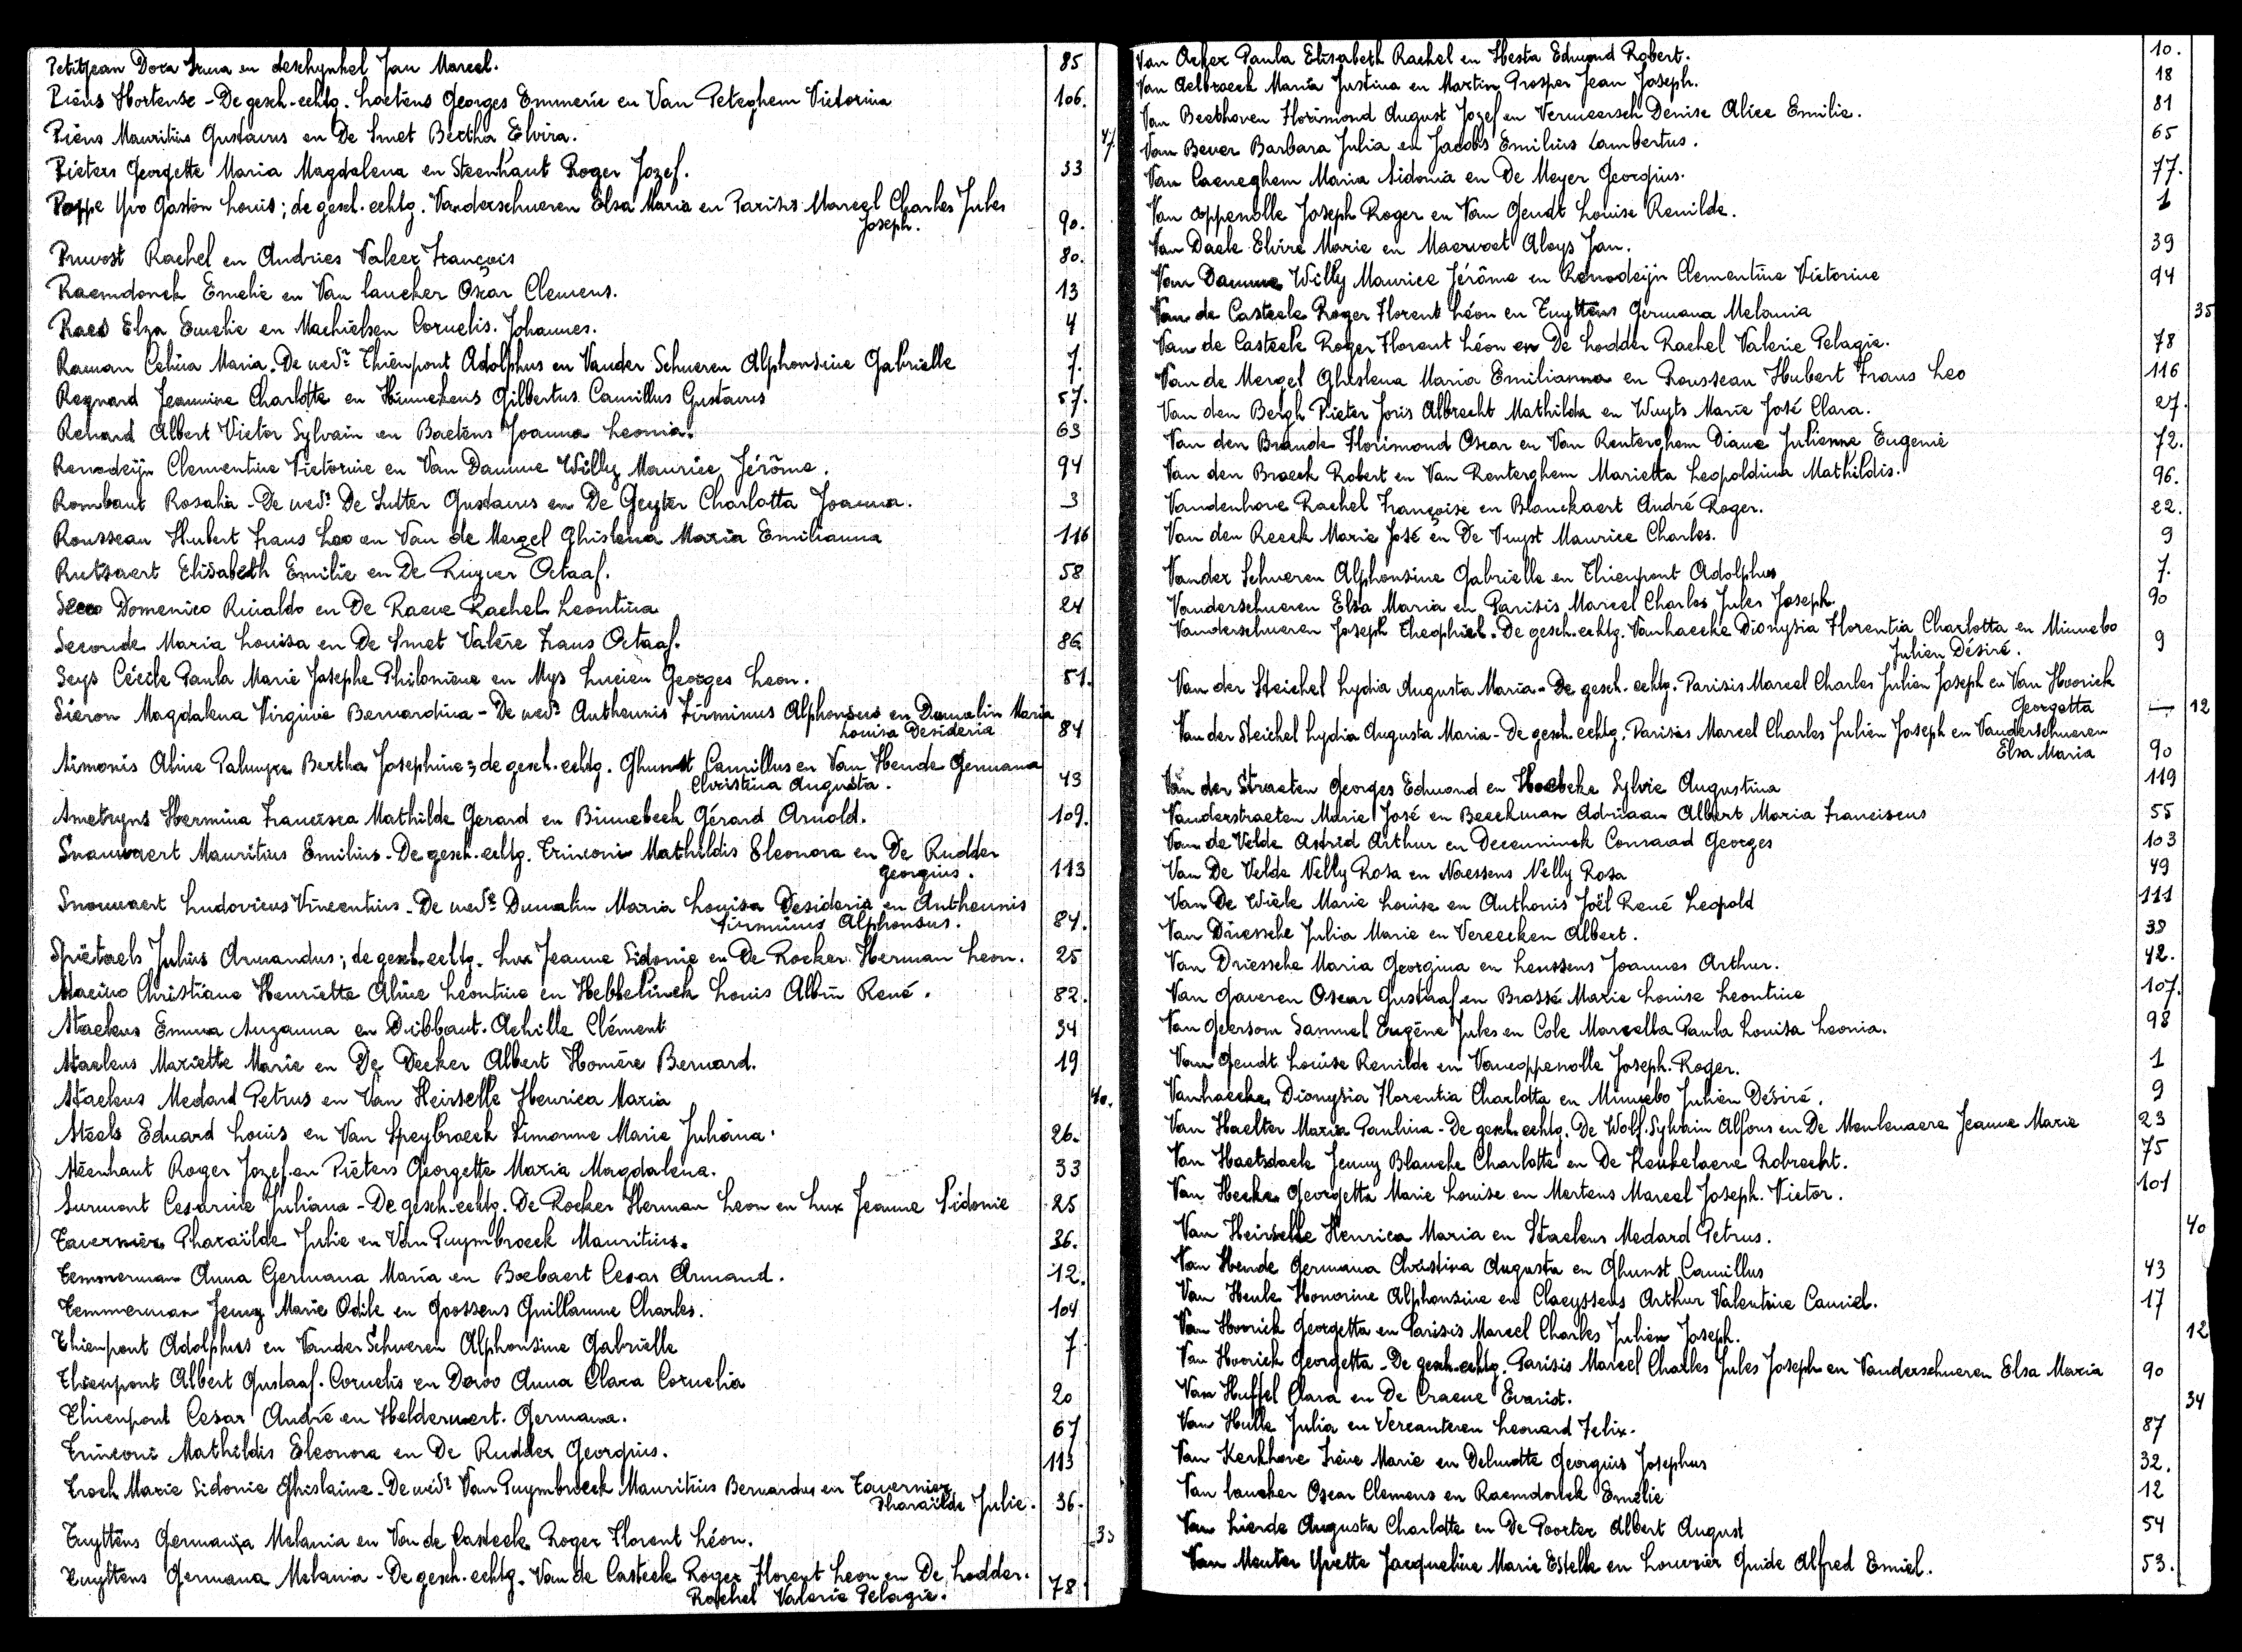 Petitjean Dora Irma en deschynkel Jan Marcel. 85
Piens Hortense - De gesch. echtg. Loetens Georges Emmerie en Van Peteghem Victorina 106.
Piens Mauritius Gustavus en De Smet Bertha Elvira. 47
Pieters Georgette Maria Magdalena en Steenhaut Roger Jozef. 33
Poppe Yvo Gaston Louis; de gesch. echtg. Vanderschueren Elsa Maria en Parisis Marcel Charles Jules
Joseph. 90.
Pruvost Rachel en Andries Valeer François 80.
Raemdonck Emelie en Van laucker Oscar Clemens. 13
Raes Elza Emelie en Machielsen Cornelis. Johannes. 4
Raman Celina Maria. De wedr. Thienpont Adolphus en Vander Schueren Alphonsine Gabrielle 7.
Regnard Jeannine Charlotte en Hunnekens Gilbertus Camillus Gustavus 57.
Renard Albert Victor Sylvain en Baetens Joanna Leonia. 63
Renodeijn Clementine Victorine en Van Damme Willy Maurice Jérôme. 94
Rombaut Rosalia - De wedr. De Sutter Gustavus en De Geyter Charlotta Joanna. 3
Rousseau Hubert Frans Leo en Van de Mergel Ghislena Maria Emilianna 116
Rutsaert Elisabeth Emilie en De Ruyver Octaaf. 58
Secco Domenico Rinaldo en De Raeve Rachel Leontina 24
Seconde Maria Louisa en De Smet Valère Frans Octaaf. 86
Seys Cécile Paula Marie Josephe Philomène en Mys Lucien Georges Leon. 51.
Sieron Magdalena Virginie Bernardina - De wedr. Antheunis Firminus Alphonsus en Dumalin Maria
Louisa Desideria 84
Simonis Aline Palmyre Bertha Josephine; de gesch. echtg. Ghunst Camillus en Van Hende Germana
Christina Augusta. 43
Smetryns Hermina Francisca Mathilde Gerard en Binnebeek Gérard Arnold. 109.
Snauwaert Mauritius Emilius. De gesch. echtg. Trinconi Mathildis Eleonora en De Rudder
Georgius. 113
Snauwaert Ludovicus Vincentius. De wedr. Dumalin Maria Louisa Desideria en Antheunis
Firminus Alphonsus. 84.
Spietaels Julius Armandus; de gesch. echtg. Lux Jeanne Sidonie en De Rocker Herman Leon. 25
Stacino Christiane Henriette Aline Leontine en Hebbelinck Louis Albin René. 82.
Staelens Emma Suzanna en Dubbaut. Achille Clément 34
Staelens Mariette Marie en De Decker Albert Homère Bernard. 19
Staelens Medard Petrus en Van Heirselle Henrica Maria 40.
Steels Eduard Louis en Van Speybroeck Simonne Marie Juliana. 26.
Steenhaut Roger Jozef en Pieters Georgette Maria Magdalena. 33
Surmont Cesarine Juliana - De gesch. echtg. De Rocker Herman Leon en Lux Jeanne Sidonie 25
Tavernier Pharaïlde Julie en Van Puymbroeck Mauritius. 36.
Temmerman Anna Germana Maria en Boebaert Cesar Armand. 12.
Temmerman Jenny Marie Odile en Goossens Guillaume Charles. 104
Thienpont Adolphus en Vander Schueren Alphonsine Gabrielle 7
Thienpont Albert Gustaaf. Cornelis en Devos Anna Clara Cornelia 20
Thienpont Cesar André en Helderweert. Germana. 67
Trinconi Mathildis Eleonora en De Rudder Georgius. 113
Troch Marie Sidonie Ghislaine. De wedr. Van Puymbroeck Mauritius Bernardus en Tavernier
Pharaïlde Julie. 36.
Tuyttens Germana Melania en Van de Casteele Roger Florent Léon. 35
Tuyttens Germana Melania - De gesch. echtg. Van de Casteele Roger Florent Leon en De Lodder.
Rachel Valerie Pelagie. 78
Van Acker Paula Elisabeth Rachel en Hesta Edmond Robert. 10.
Van Aelbroeck Maria Justina en Martin Prosper Jean Joseph. 18
Van Beethoven Florimond August Jozef en Vermeersch Denise Alice Emilie. 81
Van Bever Barbara Julia en Jacobs Emilius Lambertus. 65
Van Caeneghem Maria Sidonia en De Meyer Georgius. 77.
Van coppenolle Joseph Roger en Van Gendt Louise Renilde. 1
Van Daele Elvire Marie en Maervoet Aloys Jan. 39
Van Damme Willy Maurice Jérôme en Renodeijn Clementine Victorine 94
Van de Casteele Roger Florent Léon en Tuyttens Germana Melania 35
Van de Casteele Roger Florent Léon en De Lodder Rachel Valerie Pelagie. 78
Van de Mergel Ghislena Maria Emilianna en Rousseau Hubert Frans Leo 116
Van den Bergh Pieter Joris Albrecht Mathilda en Wuyts Marie José Clara. 27.
Van den Brande Florimond Oscar en Van Renterghem Diane Julienne Eugenie 72.
Van den Broeck Robert en Van Renterghem Marietta Leopoldina Mathildis. 96.
Vandenhove Rachel Françoise en Blanckaert André Roger. 22.
Van den Reeck Marie José en De Vuyst Maurice Charles. 9
Vander Schueren Alphonsine Gabrielle en Thienpont Adolphus 7.
Vanderschueren Elsa Maria en Parisis Marcel Charles Jules Joseph. 90
Vanderschueren Joseph Theophiel. De gesch. echtg. Vanhaecke Dionysia Florentia Charlotta en Minnebo
Julien Désiré. 9
Van der Steichel Lydia Augusta Maria - De gesch. echtg. Parisis Marcel Charles Julien Joseph en Van Hoorick
Georgetta — 12
Van der Steichel Lydia Augusta Maria - De gesch. echtg. Parisis Marcel Charles Julien Joseph en Vanderschueren
Elsa Maria 90
Van der Straeten Georges Edmond en Hoebeke Sylvie Augustina 119
Vanderstraeten Marie José en Beeckman Adriaan Albert Maria Franciscus 55
Van de Velde Astrid Arthur en Deceuninck Conraad Georges 103
Van De Velde Nelly Rosa en Naessens Nelly Rosa 49
Van De Wiele Marie Louise en Anthonis Joël René Leopold 111
Van Driessche Julia Marie en Vereecken Albert. 38
Van Driessche Maria Georgina en Leussens Joannes Arthur. 42.
Van Gaveren Oscar Gustaaf en Brassé Marie Louise Leontine 107.
Van Geersom Samuel Eugène Jules en Cole Marcella Paula Louisa Leonia. 98
Van Gendt Louise Renilde en Vancoppenolle Joseph. Roger. 1
Vanhaecke Dionysia Florentia Charlotta en Minnebo Julien Désiré. 9
Van Haelter Maria Paulina - De gesch. echtg. De Wolf. Sylvain Alfons en De Meulenaere Jeanne Marie 23
Van Haetsdaele Jenny Blanche Charlotte en De Keukelaere Robrecht. 75
Van Hecke Georgetta Marie Louise en Mertens Marcel Joseph. Victor. 101
Van Heirselle Henrica Maria en Staelens Medard Petrus. 40
Van Hende Germana Christina Augusta en Ghunst Camillus 43
Van Heule Honorine Alphonsine en Claeyssens Arthur Valentine Camiel. 17
Van Hoorick Georgetta en Parisis Marcel Charles Julien Joseph. 12
Van Hoorick Georgetta - De gesch. echtg. Parisis Marcel Charles Jules Joseph en Vanderschueren Elsa Maria 90
Van Huffel Clara en De Craene Evarist. 34
Van Hulle Julia en Vercauteren Leonard Felix. 87
Van Kerkhove Irène Marie en Delmotte Georgius Josephus 32.
Van laucker Oscar Clemens en Raemdonck Emelie 12
Van Lierde Augusta Charlotte en De Poorter Albert August 54
Van Meuter Yvette Jacqueline Marie Estelle en Louvrier Guide Alfred Emiel. 53.